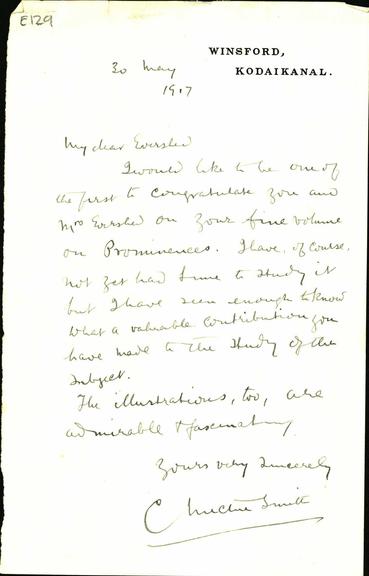 E129
WINSFORD,
KODAIKANAL.
30 May
1917
My dear Evershed
I would like to be one of
the first to congratulate you and
Mrs Evershed on your fine volume
on Prominences. I have, of course,
not yet had time to study it
but I have seen enough to know
what a valuable contribution you
have made to the study of the
subject.
The illustrations, too, are
admirable & fascinating
Yours very sincerely
C Michie Smith